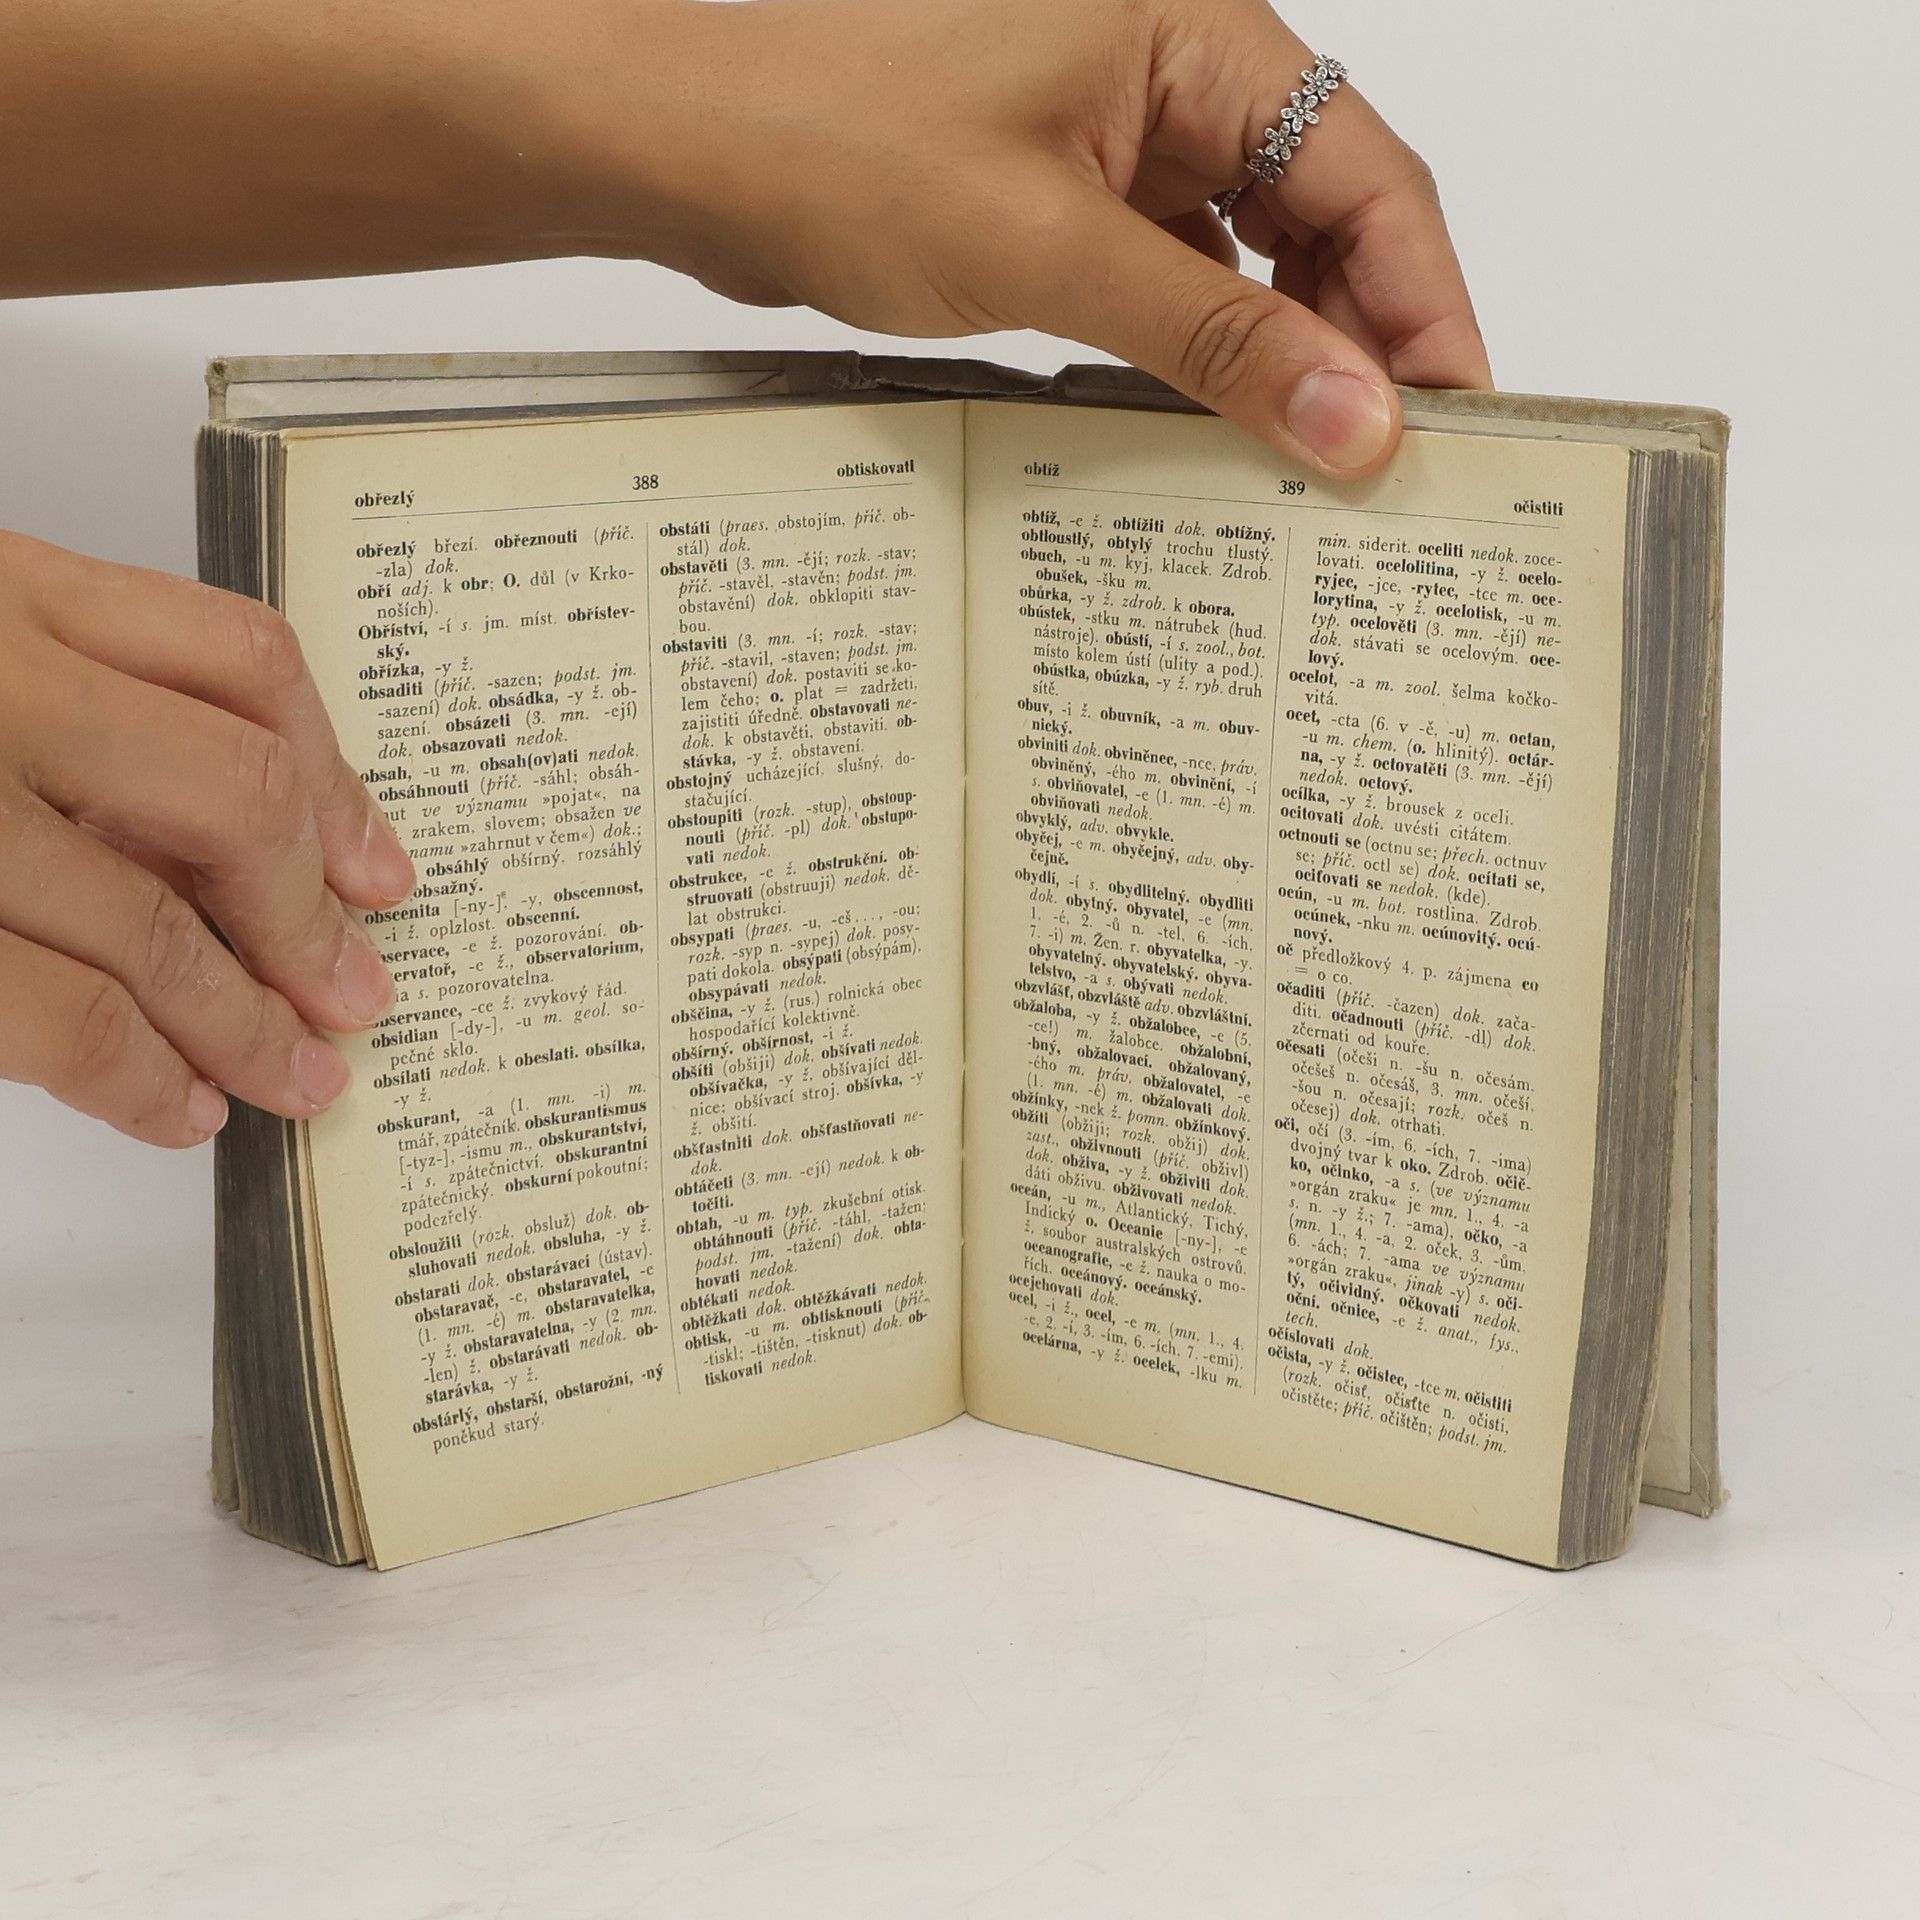 obřezlý 388 obtiskovati
obřezlý březí. obřeznouti (příč.
-zla) dok.
obří adj. k obr; O. důl (v Krko-
noších).
Obříství, -í s. jm. míst. obřístev-
ský.
obřízka, -y ž.
obsaditi (příč. -sazen; podst. jm.
-sazení) dok. obsádka, -y ž. ob-
sazení. obsázeti (3. mn. -ejí)
dok. obsazovati nedok.
obsah, -u m. obsah(ov)ati nedok.
obsáhnouti (příč. -sáhl; obsáh-
nut ve významu »pojat«, na
zrakem, slovem; obsažen ve
namu »zahrnut v čem«) dok.;
obsáhlý obšírný, rozsáhlý
obsažný.
obscenita [-ny-], -y, obscennost,
-i ž. oplzlost. obscenní.
bservace, -e ž. pozorování. ob-
servatoř, -e ž., observatorium,
ia s. pozorovatelna.
bservance, -ce ž. zvykový řád.
obsidian [-dy-], -u m. geol. so-
pečné sklo.
obsílati nedok. k obeslati. obsílka,
-y ž.
obskurant, -a (1. mn. -i) m.
tmář, zpátečník. obskurantismus
[-tyz-], -ismu m., obskurantství,
-í s. zpátečnictví. obskurantní
zpátečnický. obskurní pokoutní;
podezřelý.
obsloužiti (rozk. obsluž) dok. ob-
sluhovati nedok. obsluha, -y ž.
obstarati dok. obstarávací (ústav).
obstaravač, -e, obstaravatel, -e
(1. mn. -é) m. obstaravatelka,
-y ž. obstaravatelna, -y (2. mn.
-len) ž. obstarávati nedok. ob-
starávka, -y ž.
obstárlý, obstarší, obstarožní, -ný
poněkud starý.
obstáti (praes. obstojím, příč. ob-
stál) dok.
obstavěti (3. mn. -ějí; rozk. -stav;
příč. -stavěl, -stavěn; podst. jm.
obstavění) dok. obklopiti stav-
bou.
obstaviti (3. mn. -í; rozk. -stav;
příč. -stavil, -staven; podst. jm.
obstavení) dok. postaviti se ko-
lem čeho; o. plat = zadržeti,
zajistiti úředně. obstavovati ne-
dok. k obstavěti, obstaviti. ob-
stávka, -y ž. obstavení.
obstojný ucházející, slušný, do-
stačující.
obstoupiti (rozk. -stup), obstoup-
nouti (příč. -pl) dok. obstupo-
vati nedok.
obstrukce, -e ž. obstrukční. ob-
struovati (obstruuji) nedok. dě-
lat obstrukci.
obsypati (praes. -u, -eš..., -ou;
rozk. -syp n. -sypej) dok. posy-
pati dokola. obsýpati (obsýpám),
obsypávati nedok.
obščina, -y ž. (rus.) rolnická obec
hospodařící kolektivně.
obšírný. obšírnost, -i ž.
obšíti (obšiji) dok. obšívati nedok.
obšívačka, -y ž. obšívající děl-
nice; obšívací stroj. obšívka, -y
ž. obšití.
obšťastniti dok. obšťastňovati ne-
dok.
obtáčeti (3. mn. -ejí) nedok. k ob-
točiti.
obtah, -u m. typ. zkušební otisk.
obtáhnouti (příč. -táhl, -tažen;
podst. jm. -tažení) dok. obta-
hovati nedok.
obtékati nedok.
obtěžkati dok. obtěžkávati nedok.
obtisk, -u m. obtisknouti (příč.
-tiskl; -tištěn, -tisknut) dok. ob-
tiskovati nedok.
obtíž 389 očistiti
obtíž, -e ž. obtížiti dok. obtížný.
obtloustlý, obtylý trochu tlustý.
obuch, -u m. kyj, klacek. Zdrob.
obušek, -šku m.
obůrka, -y ž. zdrob. k obora.
obústek, -stku m. nátrubek (hud.
nástroje). obústí, -í s. zool., bot.
místo kolem ústí (ulity a pod.).
obústka, obúzka, -y ž. ryb. druh
sítě.
obuv, -i ž. obuvník, -a m. obuv-
nický.
obviniti dok. obviněnec, -nce, práv.
obviněný, -ého m. obvinění, -í
s. obviňovatel, -e (1. mn. -é) m.
obviňovati nedok.
obvyklý, adv. obvykle.
obyčej, -e m. obyčejný, adv. oby-
čejně.
obydlí, -í s. obydlitelný. obydliti
dok. obytný. obyvatel, -e (mn.
1. -é, 2. -ů n. -tel, 6. -ích,
7. -i) m. Žen. r. obyvatelka, -y.
obyvatelný. obyvatelský. obyva-
telstvo, -a s. obývati nedok.
obzvlášť, obzvláště adv. obzvláštní.
obžaloba, -y ž. obžalobce, -e (5.
-ce!) m. žalobce. obžalobní,
-bný, obžalovací. obžalovaný,
-ého m. práv. obžalovatel, -e
(1. mn. -é) m. obžalovati dok.
obžínky, -nek ž. pomn. obžínkový.
obžíti (obžiji; rozk. obžij) dok.
zast., obživnouti (příč. obživl)
dok. obživa, -y ž. obživiti dok.
dáti obživu. obživovati nedok.
oceán, -u m., Atlantický, Tichý,
Indický o. Oceanie [-ny-], -e
ž. soubor australských ostrovů.
oceanografie, -e ž. nauka o mo-
řích. oceánový. oceánský.
ocejchovati dok.
ocel, -i ž., ocel, -e m. (mn. 1., 4.
-e, 2. -í, 3. -ím, 6. -ích, 7. -emi).
ocelárna, -y ž. ocelek, -lku m.
min. siderit. oceliti nedok. zoce-
lovati. ocelolitina, -y ž. ocelo-
ryjec, -jce, -rytec, -tce m. oce-
lorytina, -y ž. ocelotisk, -u m.
typ. ocelověti (3. mn. -ějí) ne-
dok. stávati se ocelovým. oce-
lový.
ocelot, -a m. zool. šelma kočko-
vitá.
ocet, -cta (6. v -ě, -u) m. octan,
-u m. chem. (o. hlinitý). octár-
na, -y ž. octovatěti (3. mn. -ějí)
nedok. octový.
ocílka, -y ž. brousek z oceli.
ocitovati dok. uvésti citátem.
octnouti se (octnu se; přech. octnuv
se; příč. octl se) dok. ocítati se,
ociťovati se nedok. (kde).
ocún, -u m. bot. rostlina. Zdrob.
ocúnek, -nku m. ocúnovitý. ocú-
nový.
oč předložkový 4. p. zájmena co
= o co.
očaditi (příč. -čazen) dok. zača-
diti. očadnouti (příč. -dl) dok.
zčernati od kouře.
očesati (očeši n. -šu n. očesám.
očešeš n. očesáš, 3. mn. očeší.
-šou n. očesají; rozk. očeš n.
očesej) dok. otrhati.
oči, očí (3. -ím, 6. -ích, 7. -ima)
dvojný tvar k oko. Zdrob. očič-
ko, očinko, -a s. (ve významu
»orgán zraku« je mn. 1., 4. -a
s. n. -y ž.; 7. -ama), očko, -a
(mn. 1., 4. -a, 2. oček, 3. -ům.
6. -ách; 7. -ama ve významu
»orgán zraku«, jinak -y) s. oči-
tý, očividný. očkovati nedok.
oční. očnice, -e ž. anat., fys.,
tech.
očíslovati dok.
očista, -y ž. očistec, -tce m. očistiti
(rozk. očisť, očisťte n. očisti,
očistěte; příč. očištěn; podst. jm.